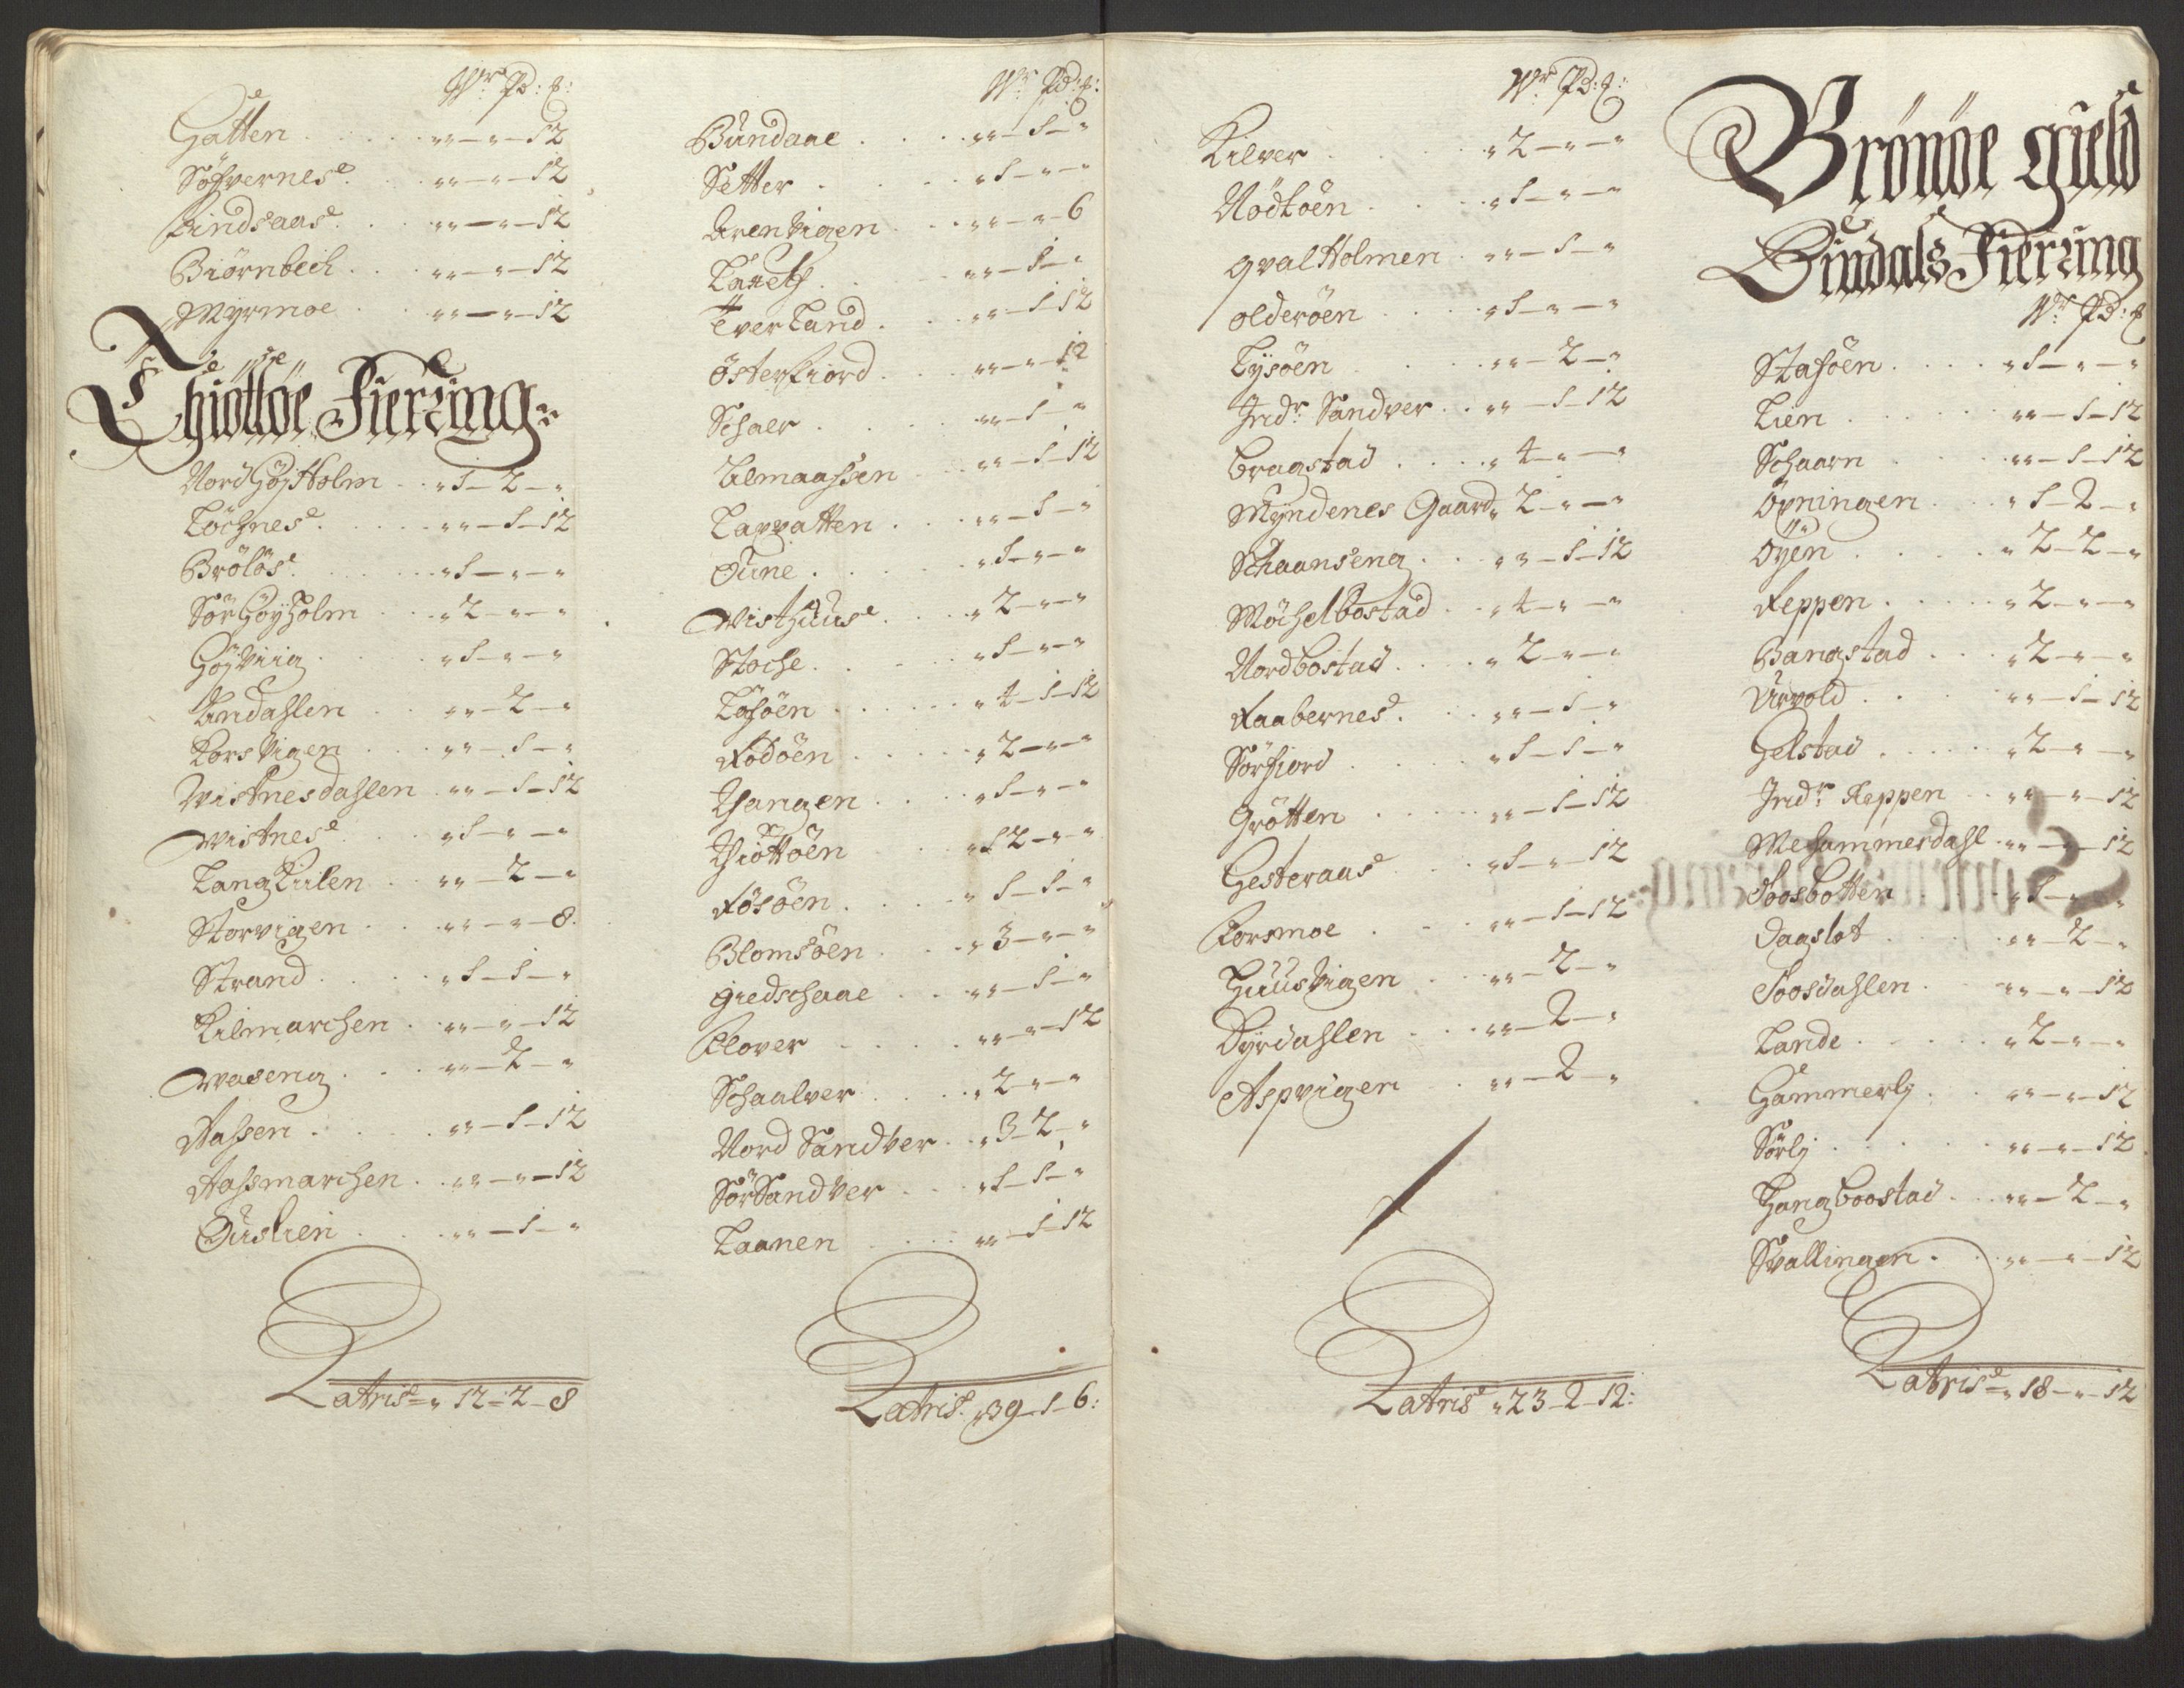 Wr Pd: £:
Gatten . . . . „„ — „ — 12
Söfvernese . . „„ — „ — 12
Lindsaase . . „„ — „ — 12
Biörnbech . . „„ — „ — 12
Myrmoe . . „„ — „ — 12
Thiöttöe Fierring
Nord Höj Holm . . „ 1 — 2 — „
Löchnese . . . „„ — 1 — 12
Brölöse . . . „ 1 — „ — „
Sör Höyholm . . „ 2 — „ — „
Höjviig . . . „ 1 — „ — „
Andahlen . . „„ — 2 — „
Korsvigen . . „„ — 1 — „
Wistnesdahlen . „„ — 1 — 12
Wistnese . . „ 1 — „ — „
Lang Kiilen . . „„ — 2 — „
Storvigen . . „„ — „ — 8.
Strand . . . „ 1 — 1 — „
Kilmarchen . . „„ — „ — 12
Waseng . . . „„ — 2 — „
Aassen . . . „„ — 1 — 12
Aassmarchen . . „„ — „ — 12
Ouslien . . . „„ — 1 — „
Latrise — „ 12 — 2 — 8
Wr Pd: £:
Bundaae . . . „„ — 1 — „
Setter . . . „ 1 — „ — „
Arenvigen . . „„ — „ — 6
„„ — 1 — „
Everland . . „„ — 1 — 12
Österfiord . . „„ — „ — 12
Schaer . . . „„ — 1 — „
Almaassen . . „„ — 1 — 12
Lavvatten . . „„ — 1 — „
Oune . . . „ 1 — „ — „
Wisthuuse . . „ 2 — „ — „
Stoche . . . „ 1 — „ — „
Töföen . . . „ 4 — 1 — 12
Rödöen . . . „ 2 — „ — „
Hangen . . . „ 1 — „ — „
Thiöttöen . . „ 12 — „ — „
Rösöen . . . „ 1 — 1 — „
Blomsöen . . „ 3 — „ — „
Giedschaae . . „„ — 1 — „
Klover . . . „„ — „ — 12
Schaalver . . „ 2 — „ — „
Nord Sandver . . „ 3 — 2 — „
Sör Sandver . . „ 1 — 1 — „
Laanen . . . „„ — 1 — 12
Latrise „ 39 — 1 — 6:
Wr Pd: £:
Kilver . . . „ 2 — „ — „
Rödtöen . . . „ 1 — „ — „
Qval Holmen . „„ — 1 — „
Olderöen . . . „ 1 — „ — „
Tysöen . . . „„ — 2 — „
Indr Sandver . . „„ — 1 — 12
Bragstad . . . „ 4 — „ — „
Myndenes Gaard „ 2 — „ — „
Schaanseng . . „„ — 1 — 12
Möchelbostad . . „ 4 — „ — „
Nordbostad . . „ 2 — „ — „
Raabernese . . „„ — 1 — „
Sörfiord . . . „ 1 — 1 — „
Grötten . . . „„ — 1 — 12
Hesteraase . . „ 1 — „ — 12
Forsmoe . . . „„ — 1 — 12
Huusvigen . . „„ — 2 — „
Dyrdahlen . . „„ — 2 — „
Aspvigen . . „„ — 2 — „
Latrise „ 23 — 2 — 12:
Brönöe gield
Bindals Fierring
Wr Pd: £
Stahöen . . . „ 1 — „ — „
Lien . . . „„ — 1 — 12
Schaarn . . . „„ — 1 — 12
Öyningen . . „ 1 — 2 — „
Öyen . . . „ 2 — 2 — „
Reppen . . . „ 2 — „ — „
Bangstad . . „ 2 — „ — „
Urvold . . . „„ — 1 — 12
Helstad . . . „ 2 — „ — „
Indr Reppen . . „„ — „ — 12
Mehammerdahl . „„ — „ — 12
Soosbotten . . „ 1 — „ — „
Dagslot . . . „„ — 2 — „
Soosdahlen . . „„ — „ — 12
Lande . . . „ 2 — „ — „
Hammerly . . „„ — „ — 12
Sörly . . . „„ — „ — 12
Hangboostad . . „„ — 2 — „
Svallingen . . „„ — „ — 12
Latrise — „ 18 — „ — 12